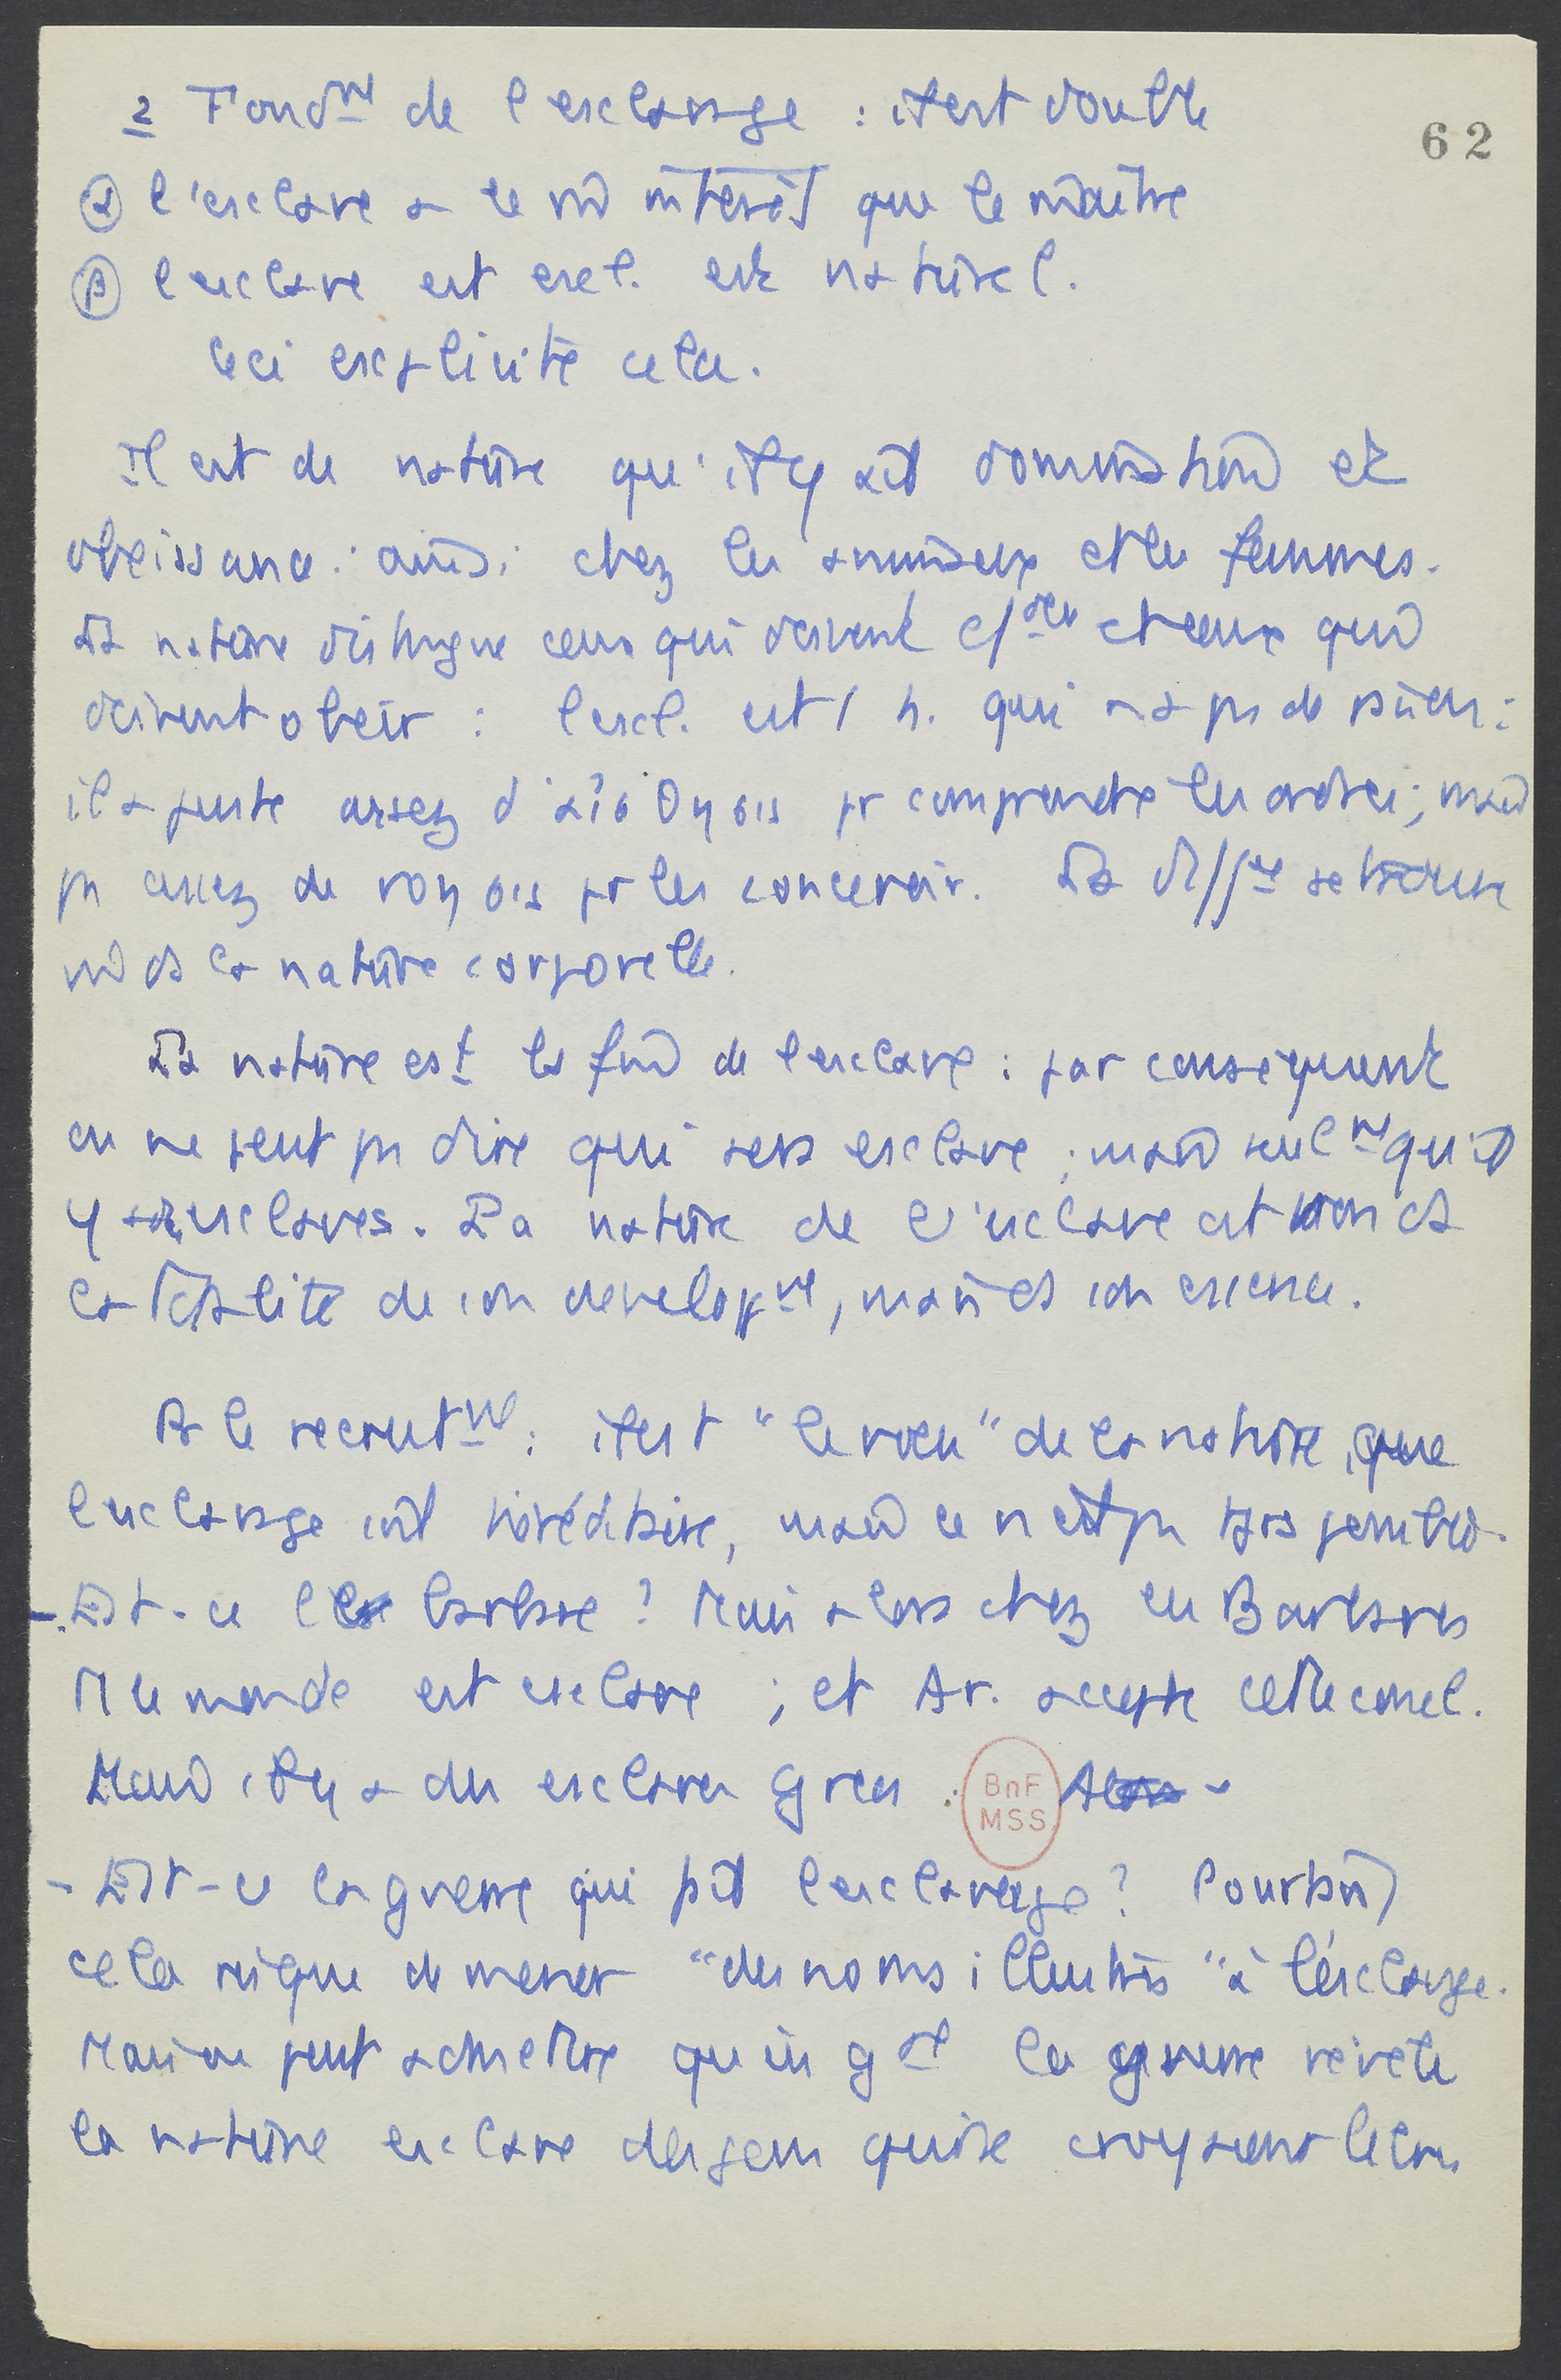 62
2 Fondmt de l'esclavage : il est double
α l'esclave a le m̂ intérêt que le maître
β l'esclave est escl. est naturel.
Ceci explicite cela.
Il est de nature qu'il y ait domination et
obéissance : ainsi chez les animaux et les femmes.
La nature distingue ceux qui doivent cder et ceux qui
doivent obéir : l'escl. est 1 h. qui n'a pas de :
il a juste assez d' pr comprendre les ordres ; mais
pas assez de pr les concevoir. La diffce se trouve
m̂ ds la nature corporelle.
La nature est la fin de l'esclave : par conséquent
on ne peut pas dire qui sera esclave ; mais seulmt qu'il
y a esclaves. La nature de l'esclave est non ds
la de son developpmt, mais ds son essence.
 le recrutmt : il est "le voeu" de la nature, que
l'esclavage soit héréditaire, mais ce n'est pas tjrs possible.
- Est-ce le barbare ? Mais alors chez les Barbares
tt le monde est esclave ; et Ar. accepte cette conscl.
Mais il y a des esclaves grecs.
BnF
MSS
- Est-ce la guerre qui fait l'esclavage ? Pourtant
cela risque de mener "des noms illustres" à l'esclavage.
Mais on peut admettre qu'en gal la guerre révèle
la nature esclave des gens qui se croyaient libres